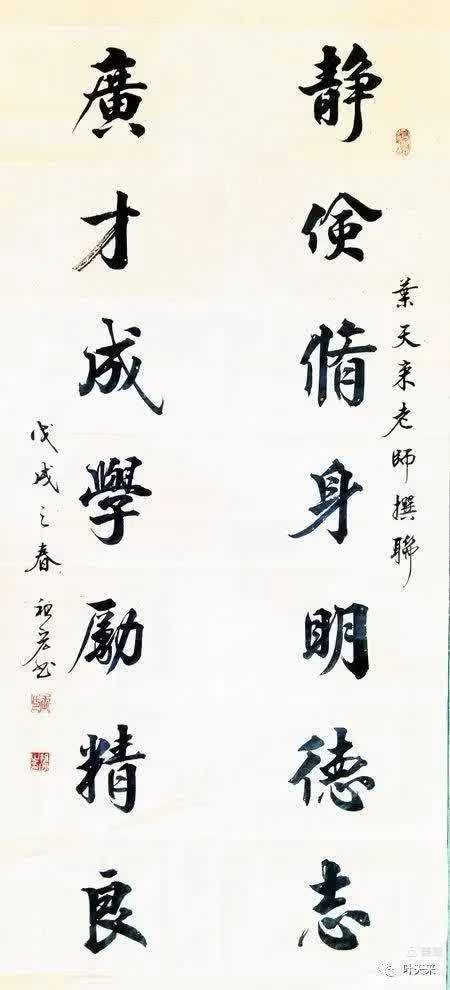 葉天来老師撰聯
静儉脩身明德志
廣才成學勵精良
戊戌之春
叶天来